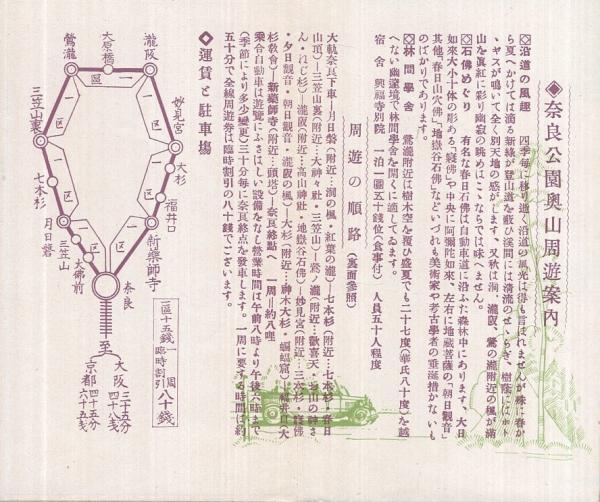 ◈奈良公園奥山周遊案內
◇沿道の風趣　四季每に移り逝く沿道の風光は得も言はれませんが殊に春か
ら夏へかけては滴る新綠が登山道を蔽ひ溪間には淸流のせゝらぎ、樹蔭にはホト
ヽギスが鳴いて全く別天地の感がします。又秋は洞、瀧阪、鶯の瀧附近の楓が滿
山を眞紅に彩り幽寂の眺めはこゝならでは味へません。
◇石佛めぐり　有名な春日石佛は自動車道に沿ふた森林中にあります、大日
如來大小十体の彫ある「寢佛」や中央に阿彌陀如來、左右に地藏菩薩の「朝日觀音」
其他「春日山穴佛」「地獄谷石佛」などいづれも美術家や考古學者の垂涎措かないも
のばかりであります。
◇林間學舍　鶯瀧附近は樹木空を覆ひ盛夏でも二十七度（華氏八十度）を越
へない幽邃境で林間學舍を開くに適してゐます。
宿舍　興福寺別院　一泊一圓五十錢位（食事付）　人員五十人程度
周遊の順路（裏面參照）
大軌奈良下車―月日磐（附近…洞の楓・紅葉の瀧）―七本杉（附近…七本杉・春日
山頂）―三笠山裏（附近…大神々社・三笠山）―鶯ノ瀧（附近…歡喜天・
ん・ねじ杉）―瀧阪（附近…高山神社・地獄谷石佛）―妙見宮（附近…三本杉・寢佛
・夕日觀音・朝日觀音・瀧阪の楓）―大杉（附近…神木大杉・蝙蝠窟）―福井口―大
杉敎會）―新藥師寺（附近…頭塔）―奈良終點へ　一周＝約八哩
◈運賃と駐車場
乘合自動車は遊覽にふさはしい設備をなし營業時間は午前八時より午後六時まで
（季節により多少變更）三十分每に奈良終點を發車します。一周に要する時間は約
五十分で全線周遊券は臨時割引の八十錢でございます。
鶯瀧
大原橋
瀧阪
妙見宮
大杉
福井口
新藥師寺
奈良
大佛前
三笠山
月日磐
七本杉
三笠山裏
一區
一區
一區
一區
一區
一區
一區十五錢
一周
臨時割引八十錢
至
大阪
京都